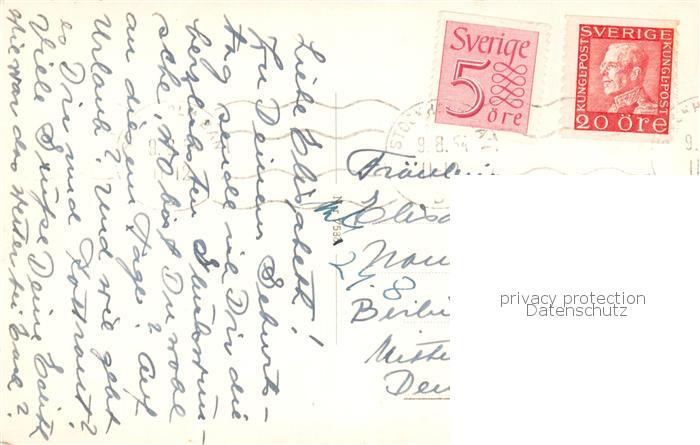 Liebe Elisabeth!
Zu Deinem Geburts-
tag sende ich Dir die
herzlichsten Glückwün-
sche. Wo bist Du wohl
an diesem Tage? Auf
Urlaub? Und wie geht
es Dir und Rottraut?
Viele Grüße Deine Edith
Wie war das Wetter bei Euch?
Sverige
5 öre
SVERIGE
KUNGL·POST
KUNGL·POST
20 öre
9.8.54
Fräulein
Elisa
Berlin
Mitte
Deu
2/8
privacy protection
Datenschutz